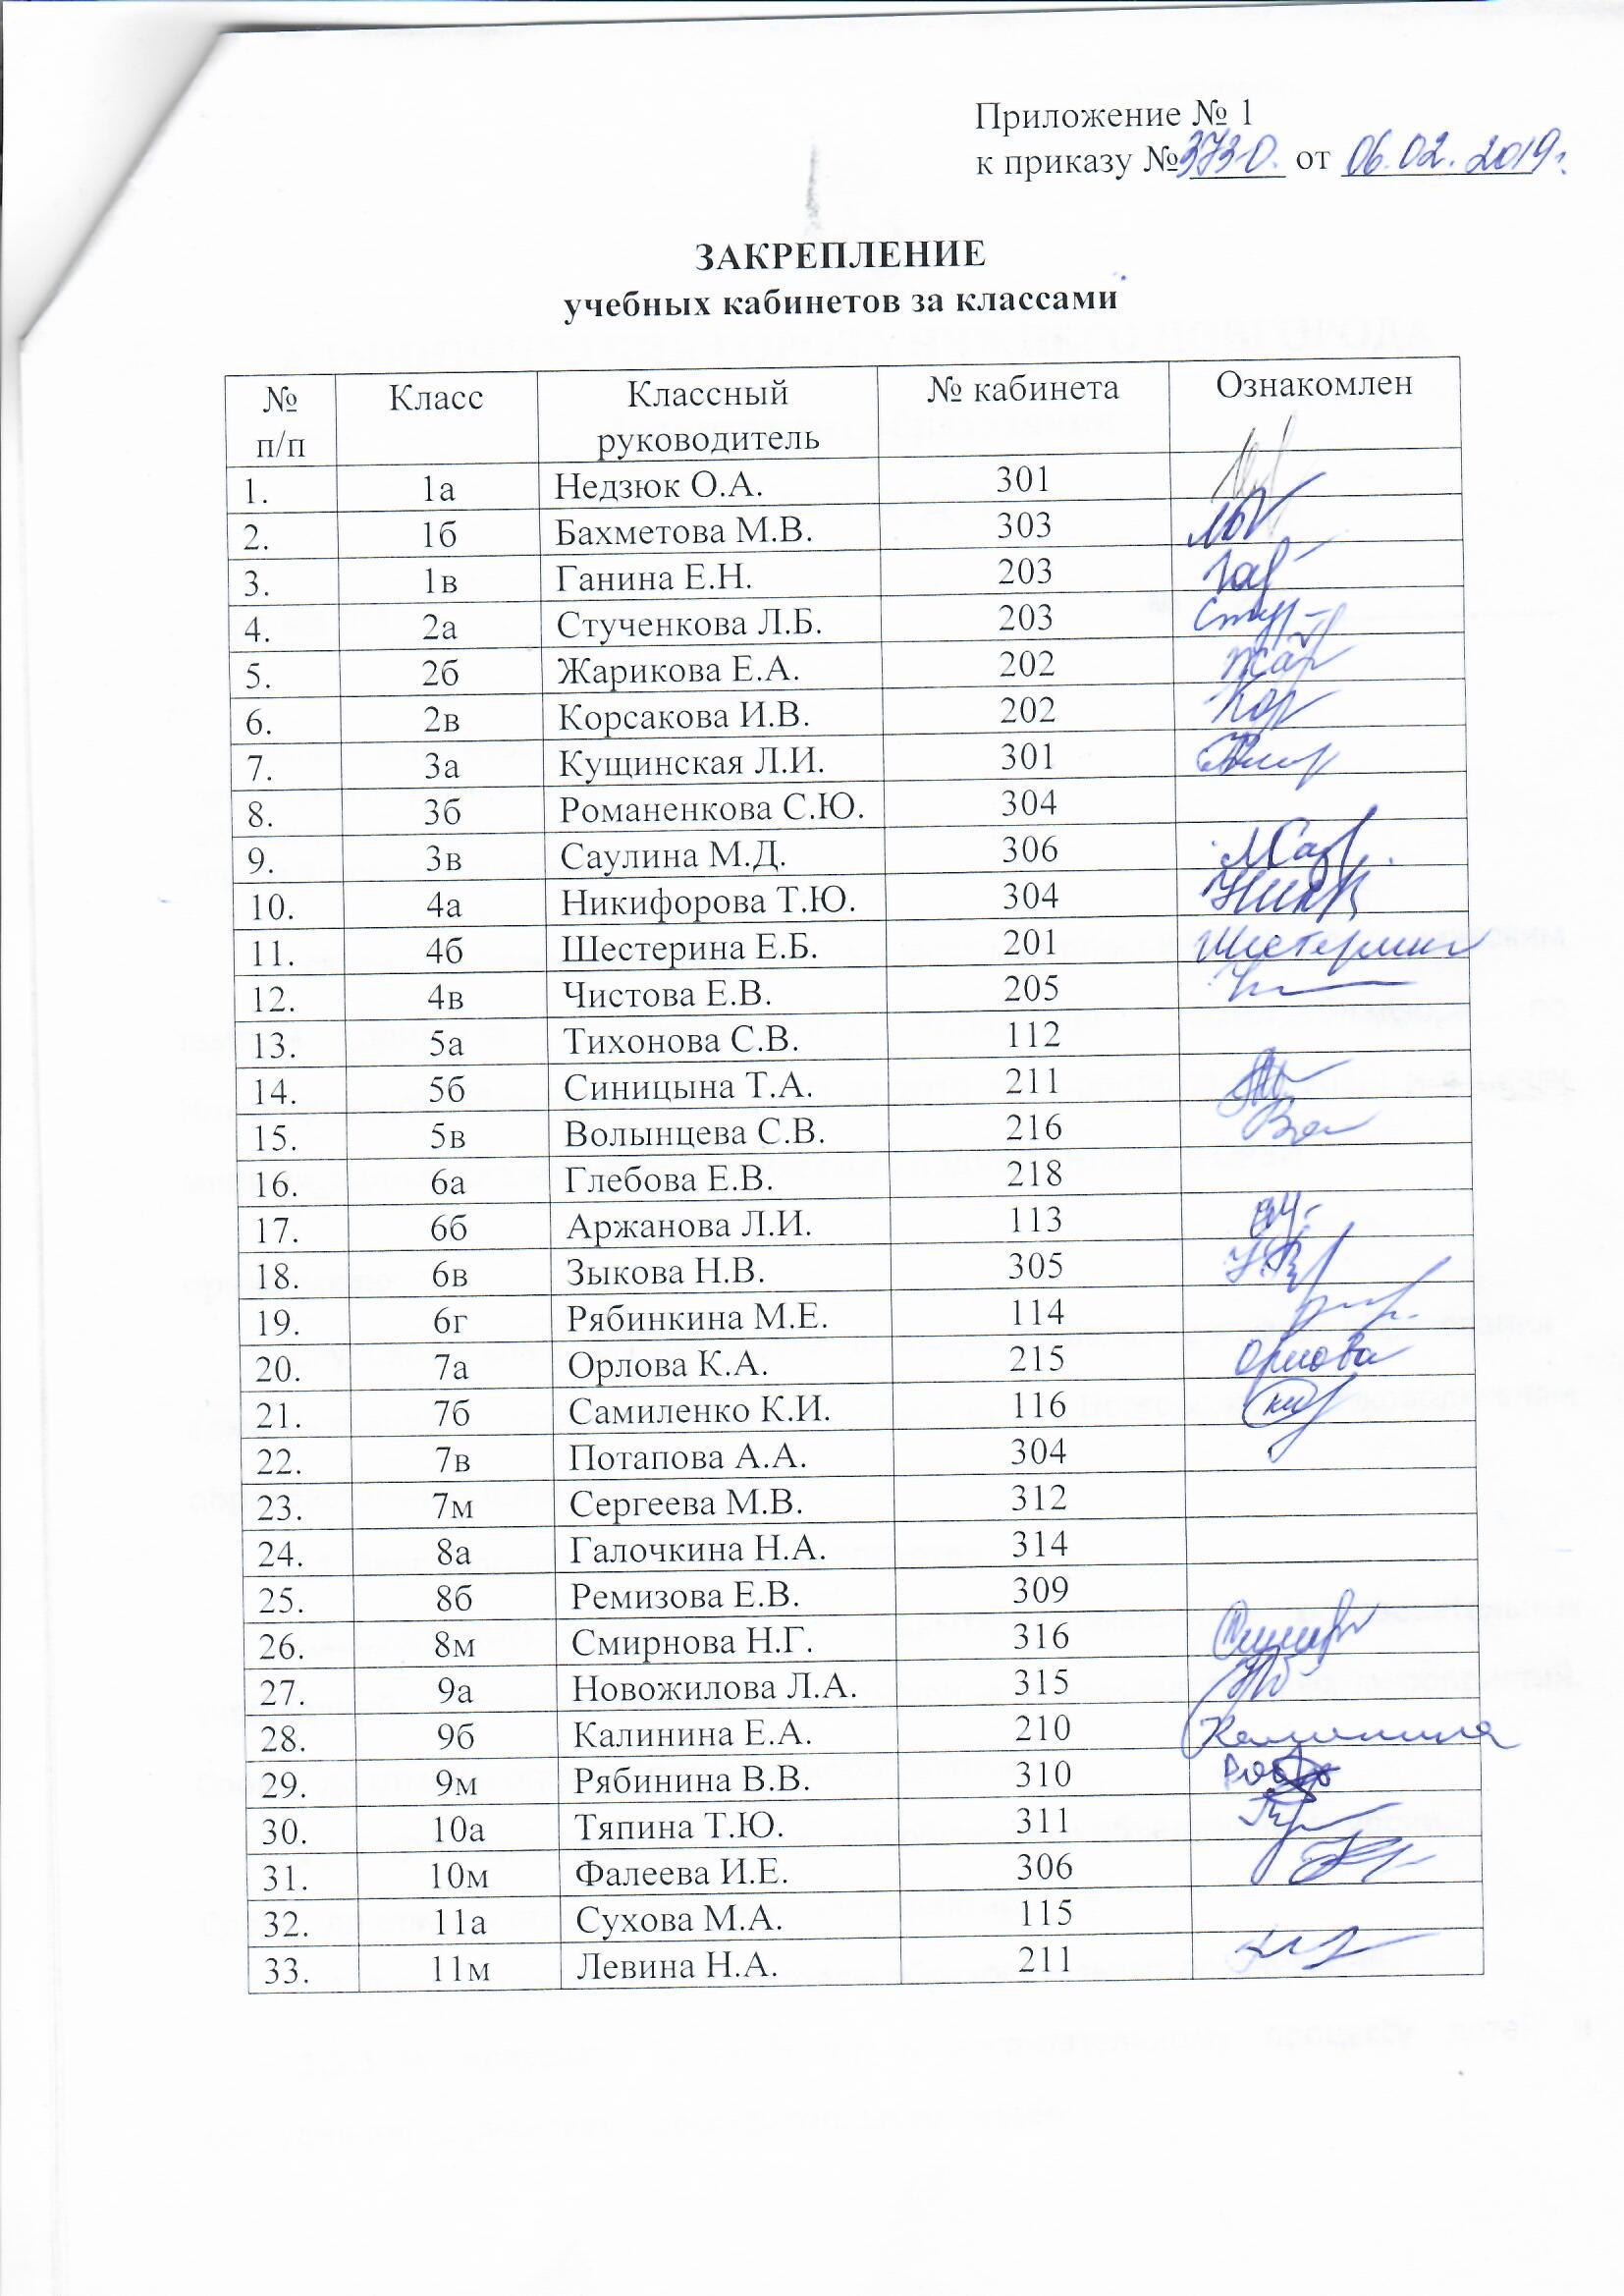 Приложение № 1
к приказу № 373-О. от 06.02.2019г.
ЗАКРЕПЛЕНИЕ
учебных кабинетов за классами
№ п/п Класс Классный руководитель № кабинета Ознакомлен
1. 1а Недзюк О.А. 301
2. 1б Бахметова М.В. 303
3. 1в Ганина Е.Н. 203
4. 2а Стученкова Л.Б. 203
5. 2б Жарикова Е.А. 202
6. 2в Корсакова И.В. 202
7. 3а Кущинская Л.И. 301
8. 3б Романенкова С.Ю. 304
9. 3в Саулина М.Д. 306
10. 4а Никифорова Т.Ю. 304
11. 4б Шестерина Е.Б. 201
12. 4в Чистова Е.В. 205
13. 5а Тихонова С.В. 112
14. 5б Синицына Т.А. 211
15. 5в Волынцева С.В. 216
16. 6а Глебова Е.В. 218
17. 6б Аржанова Л.И. 113
18. 6в Зыкова Н.В. 305
19. 6г Рябинкина М.Е. 114
20. 7а Орлова К.А. 215 Орлова
21. 7б Самиленко К.И. 116
22. 7в Потапова А.А. 304
23. 7м Сергеева М.В. 312
24. 8а Галочкина Н.А. 314
25. 8б Ремизова Е.В. 309
26. 8м Смирнова Н.Г. 316
27. 9а Новожилова Л.А. 315
28. 9б Калинина Е.А. 210 Калинина
29. 9м Рябинина В.В. 310
30. 10а Тяпина Т.Ю. 311
31. 10м Фалеева И.Е. 306
32. 11а Сухова М.А. 115
33. 11м Левина Н.А. 211